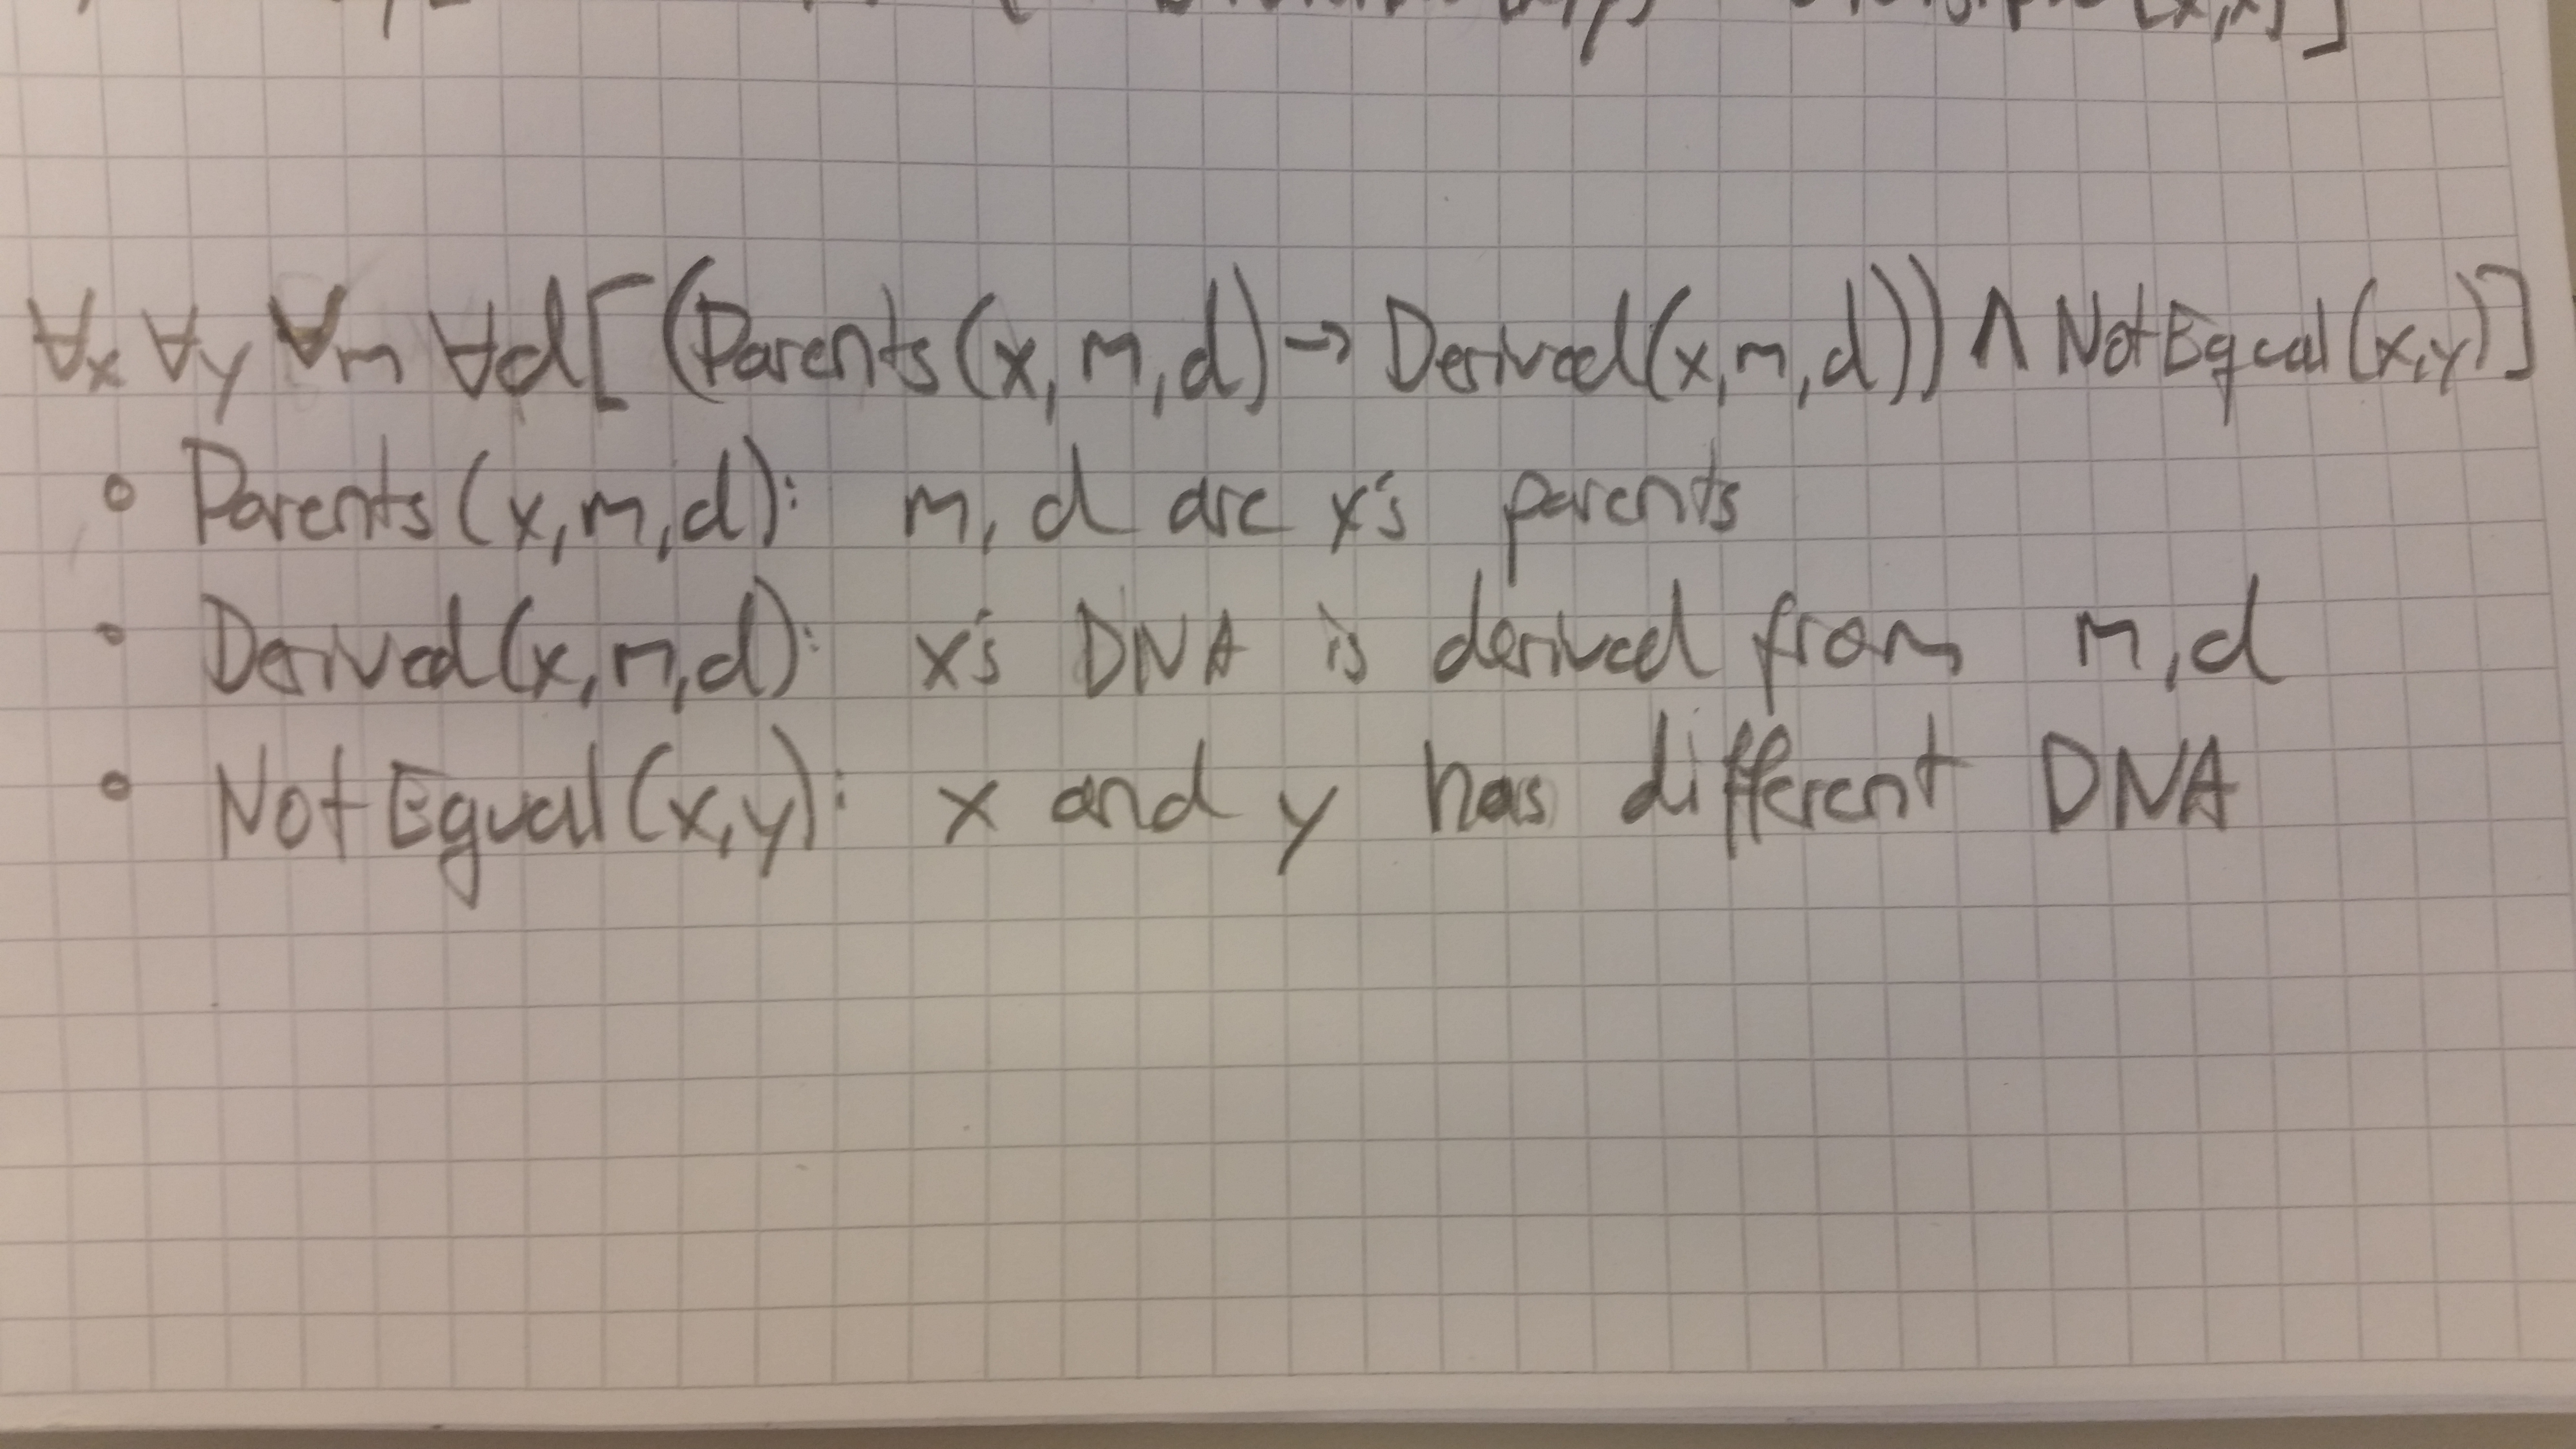 ∀x ∀y ∀m ∀d[(Parents(x,m,d)→Derived(x,m,d))∧NotEqual(x,y)]
∘ Parents(x,m,d): m,d are x's parents
∘ Derived(x,m,d): x's DNA is derived from m,d
∘ NotEqual(x,y): x and y has different DNA